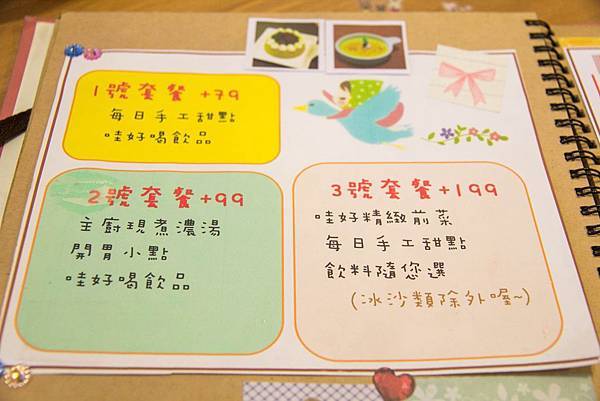 1號套餐 +79
每日手工甜點
哇好喝飲品
2號套餐+99
主廚現煮濃湯
開胃小點
哇好喝飲品
3號套餐+199
哇好精緻前菜
每日手工甜點
飲料隨您選
(冰沙類除外喔~)